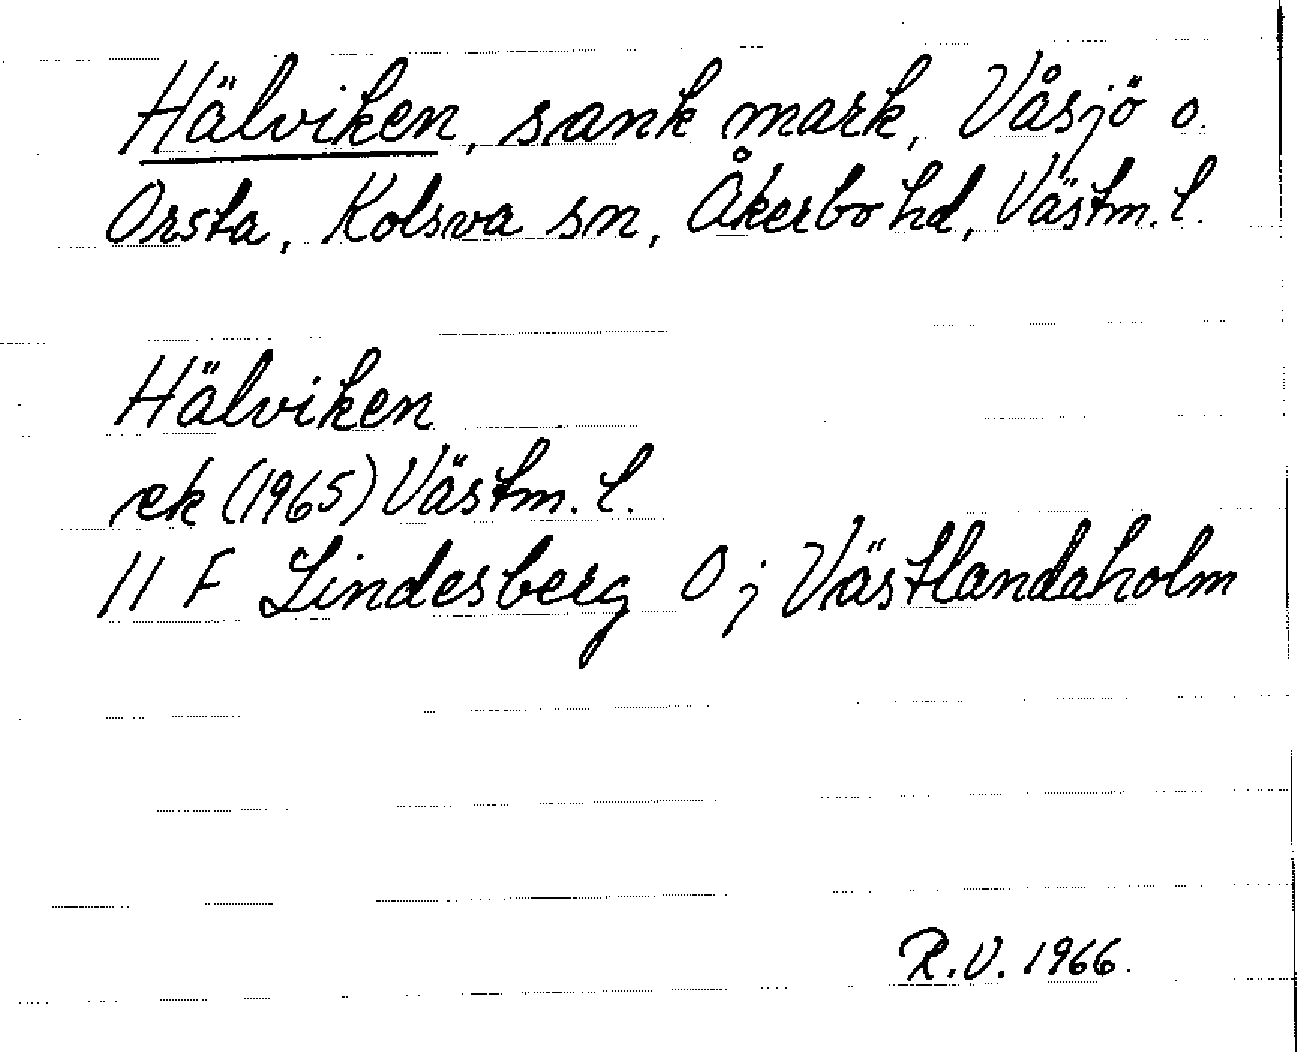 Hälviken, sank mark, Våsjö o.
Orsta, Kolsva sn, Åkerbo hd, Västm. l.
Hälviken
ek (1965) Västm. l.
11 F Lindesberg 0 j Västlandaholm
R.V. 1966.